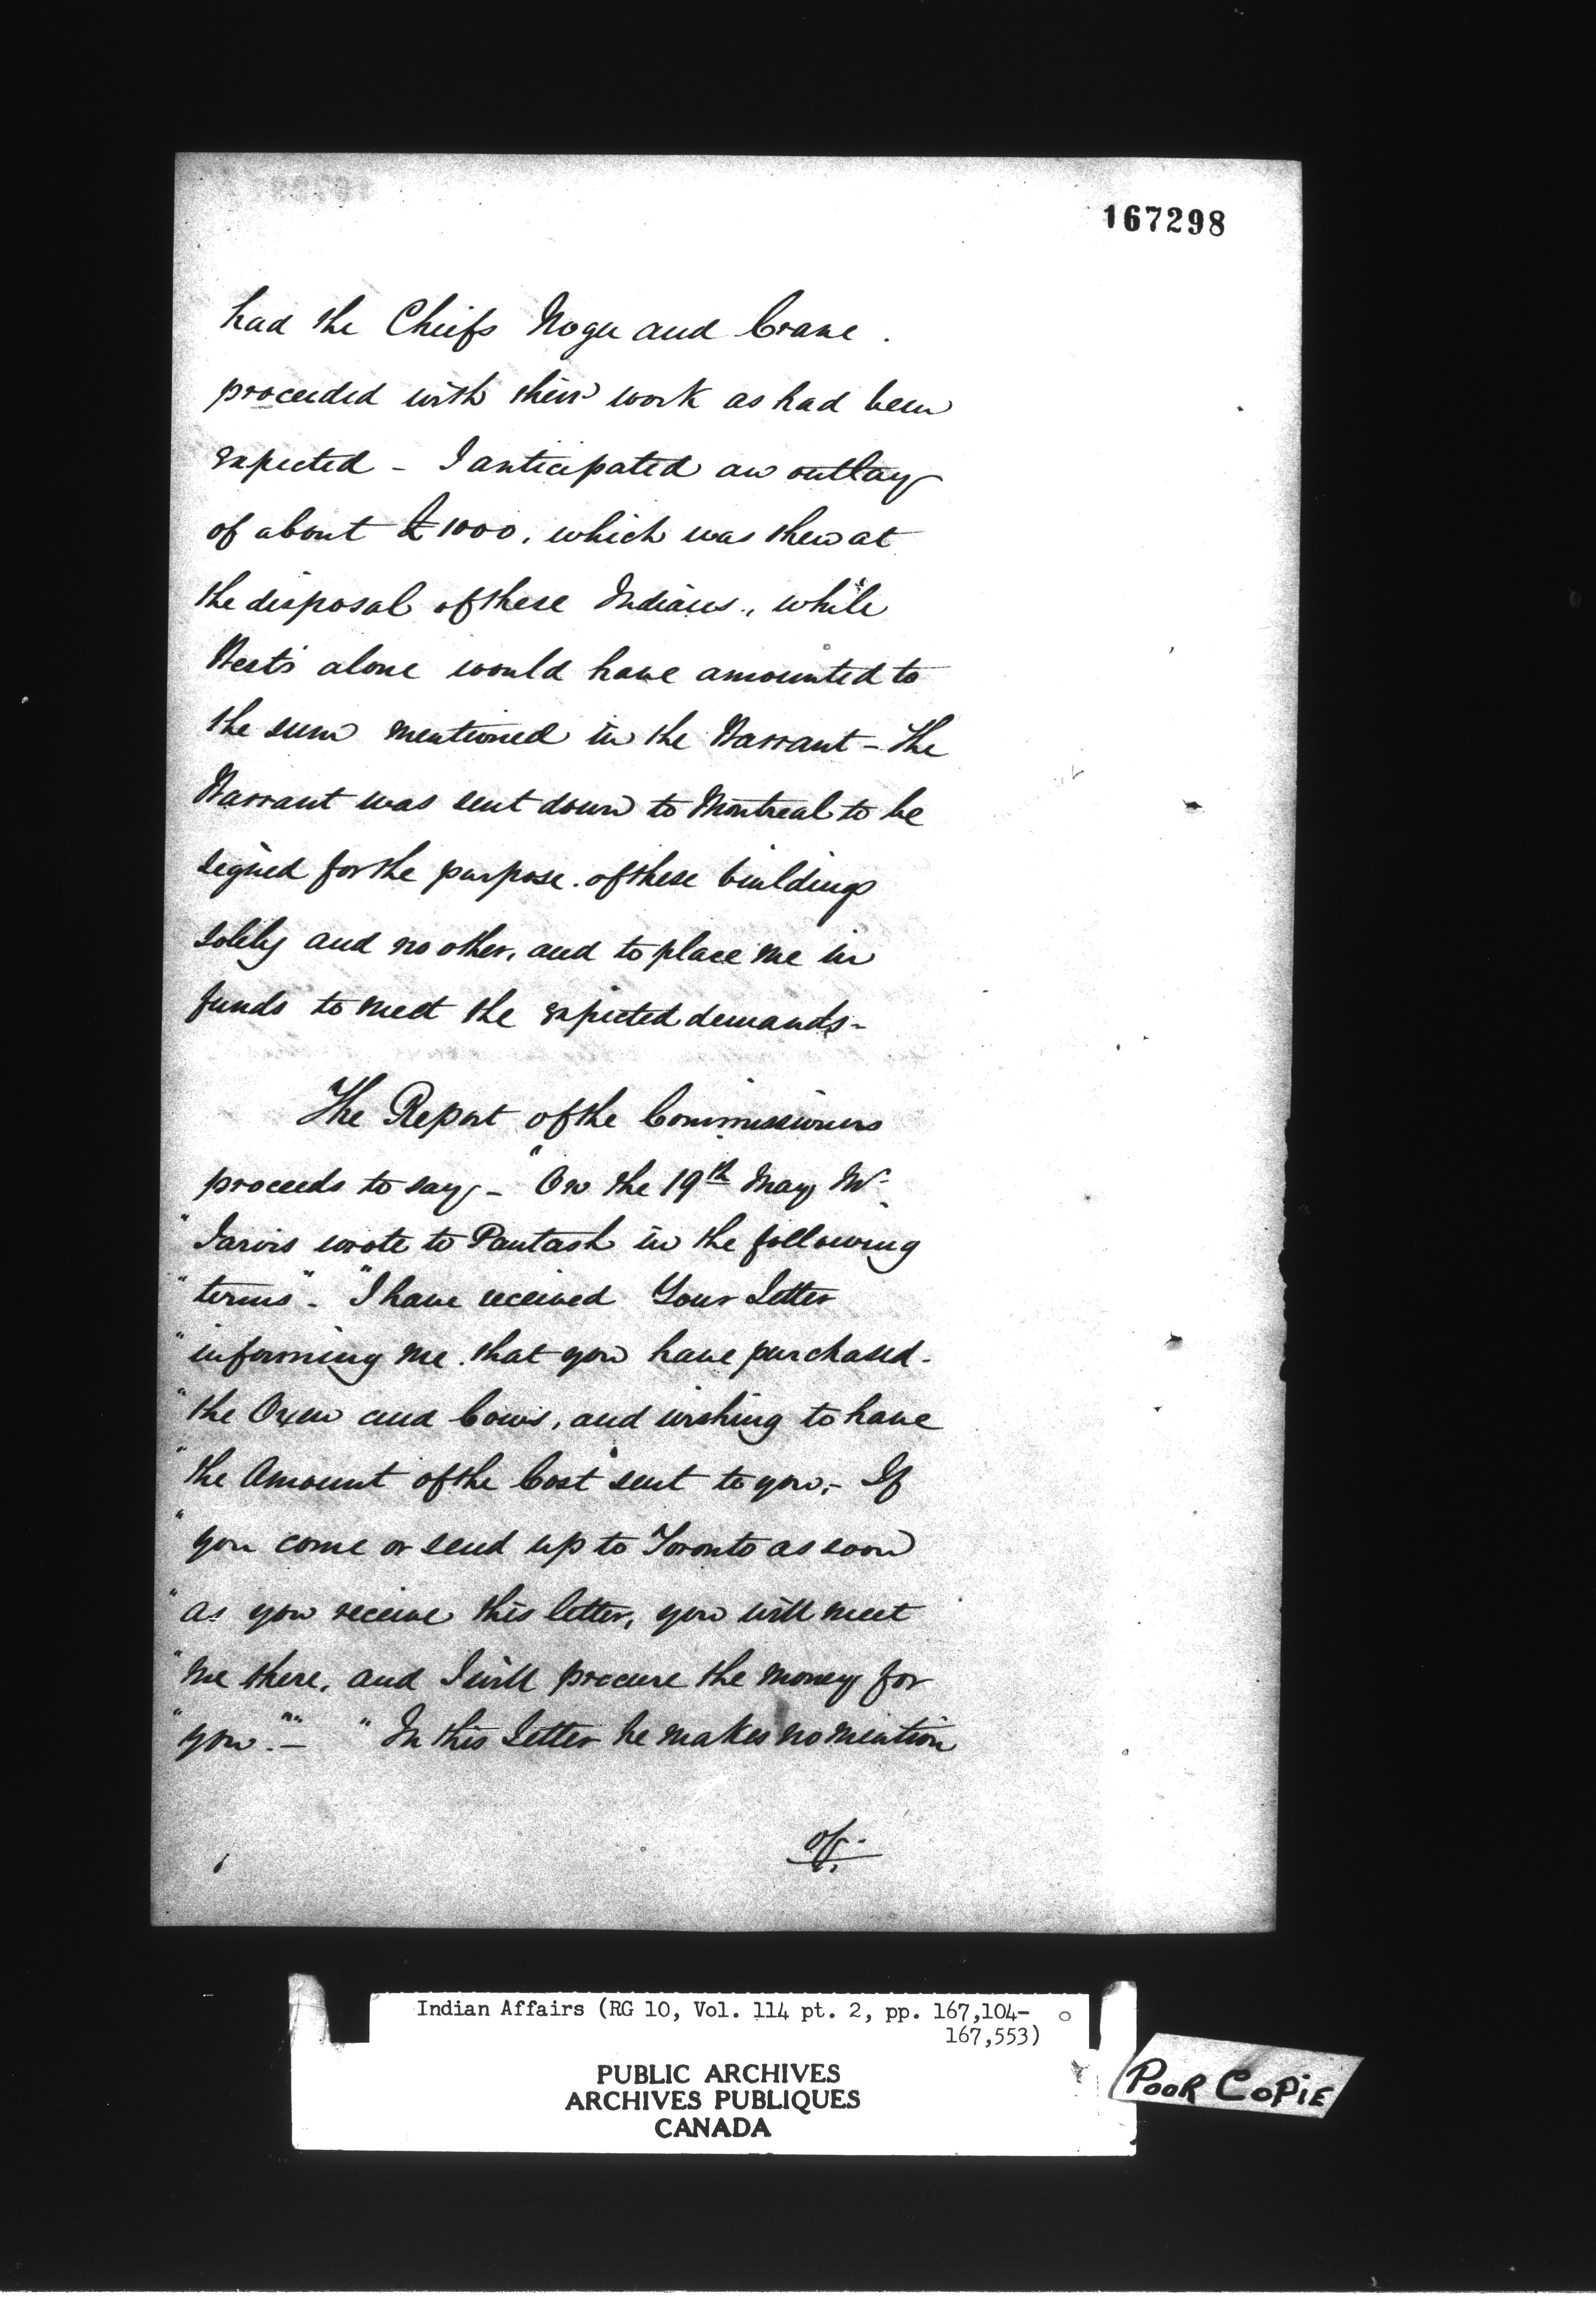 167298
had the Chiefs Nogee and Crane.
proceeded with their work as had been
expected - I anticipated an outlay
of about £1000, which was then at
the disposal of these Indians, while
West's alone would have amounted to
the sum mentioned in the Warrant - The
Warrant was sent down to Montreal to be
signed for the purpose of these buildings
solely and no other, and to place me in
funds to meet the expected demands -
The Report of the Commissioners
proceeds to say - "On the 19th May Mr.
"Jarvis wrote to Pautash in the following
"terms". "I have received Your Letter
"informing me that you have purchased
"the Oxen and Cows, and wishing to have
"the Amount of the Cost sent to you, - If
"you come or send up to Toronto as soon
"as you receive this letter, you will meet
"me there, and I will procure the money for
"you."" - "In this Letter he makes no mention
of
Indian Affairs (RG 10, Vol. 114 pt. 2, pp. 167,104-
167,553)
PUBLIC ARCHIVES
ARCHIVES PUBLIQUES
CANADA
POOR COPIE